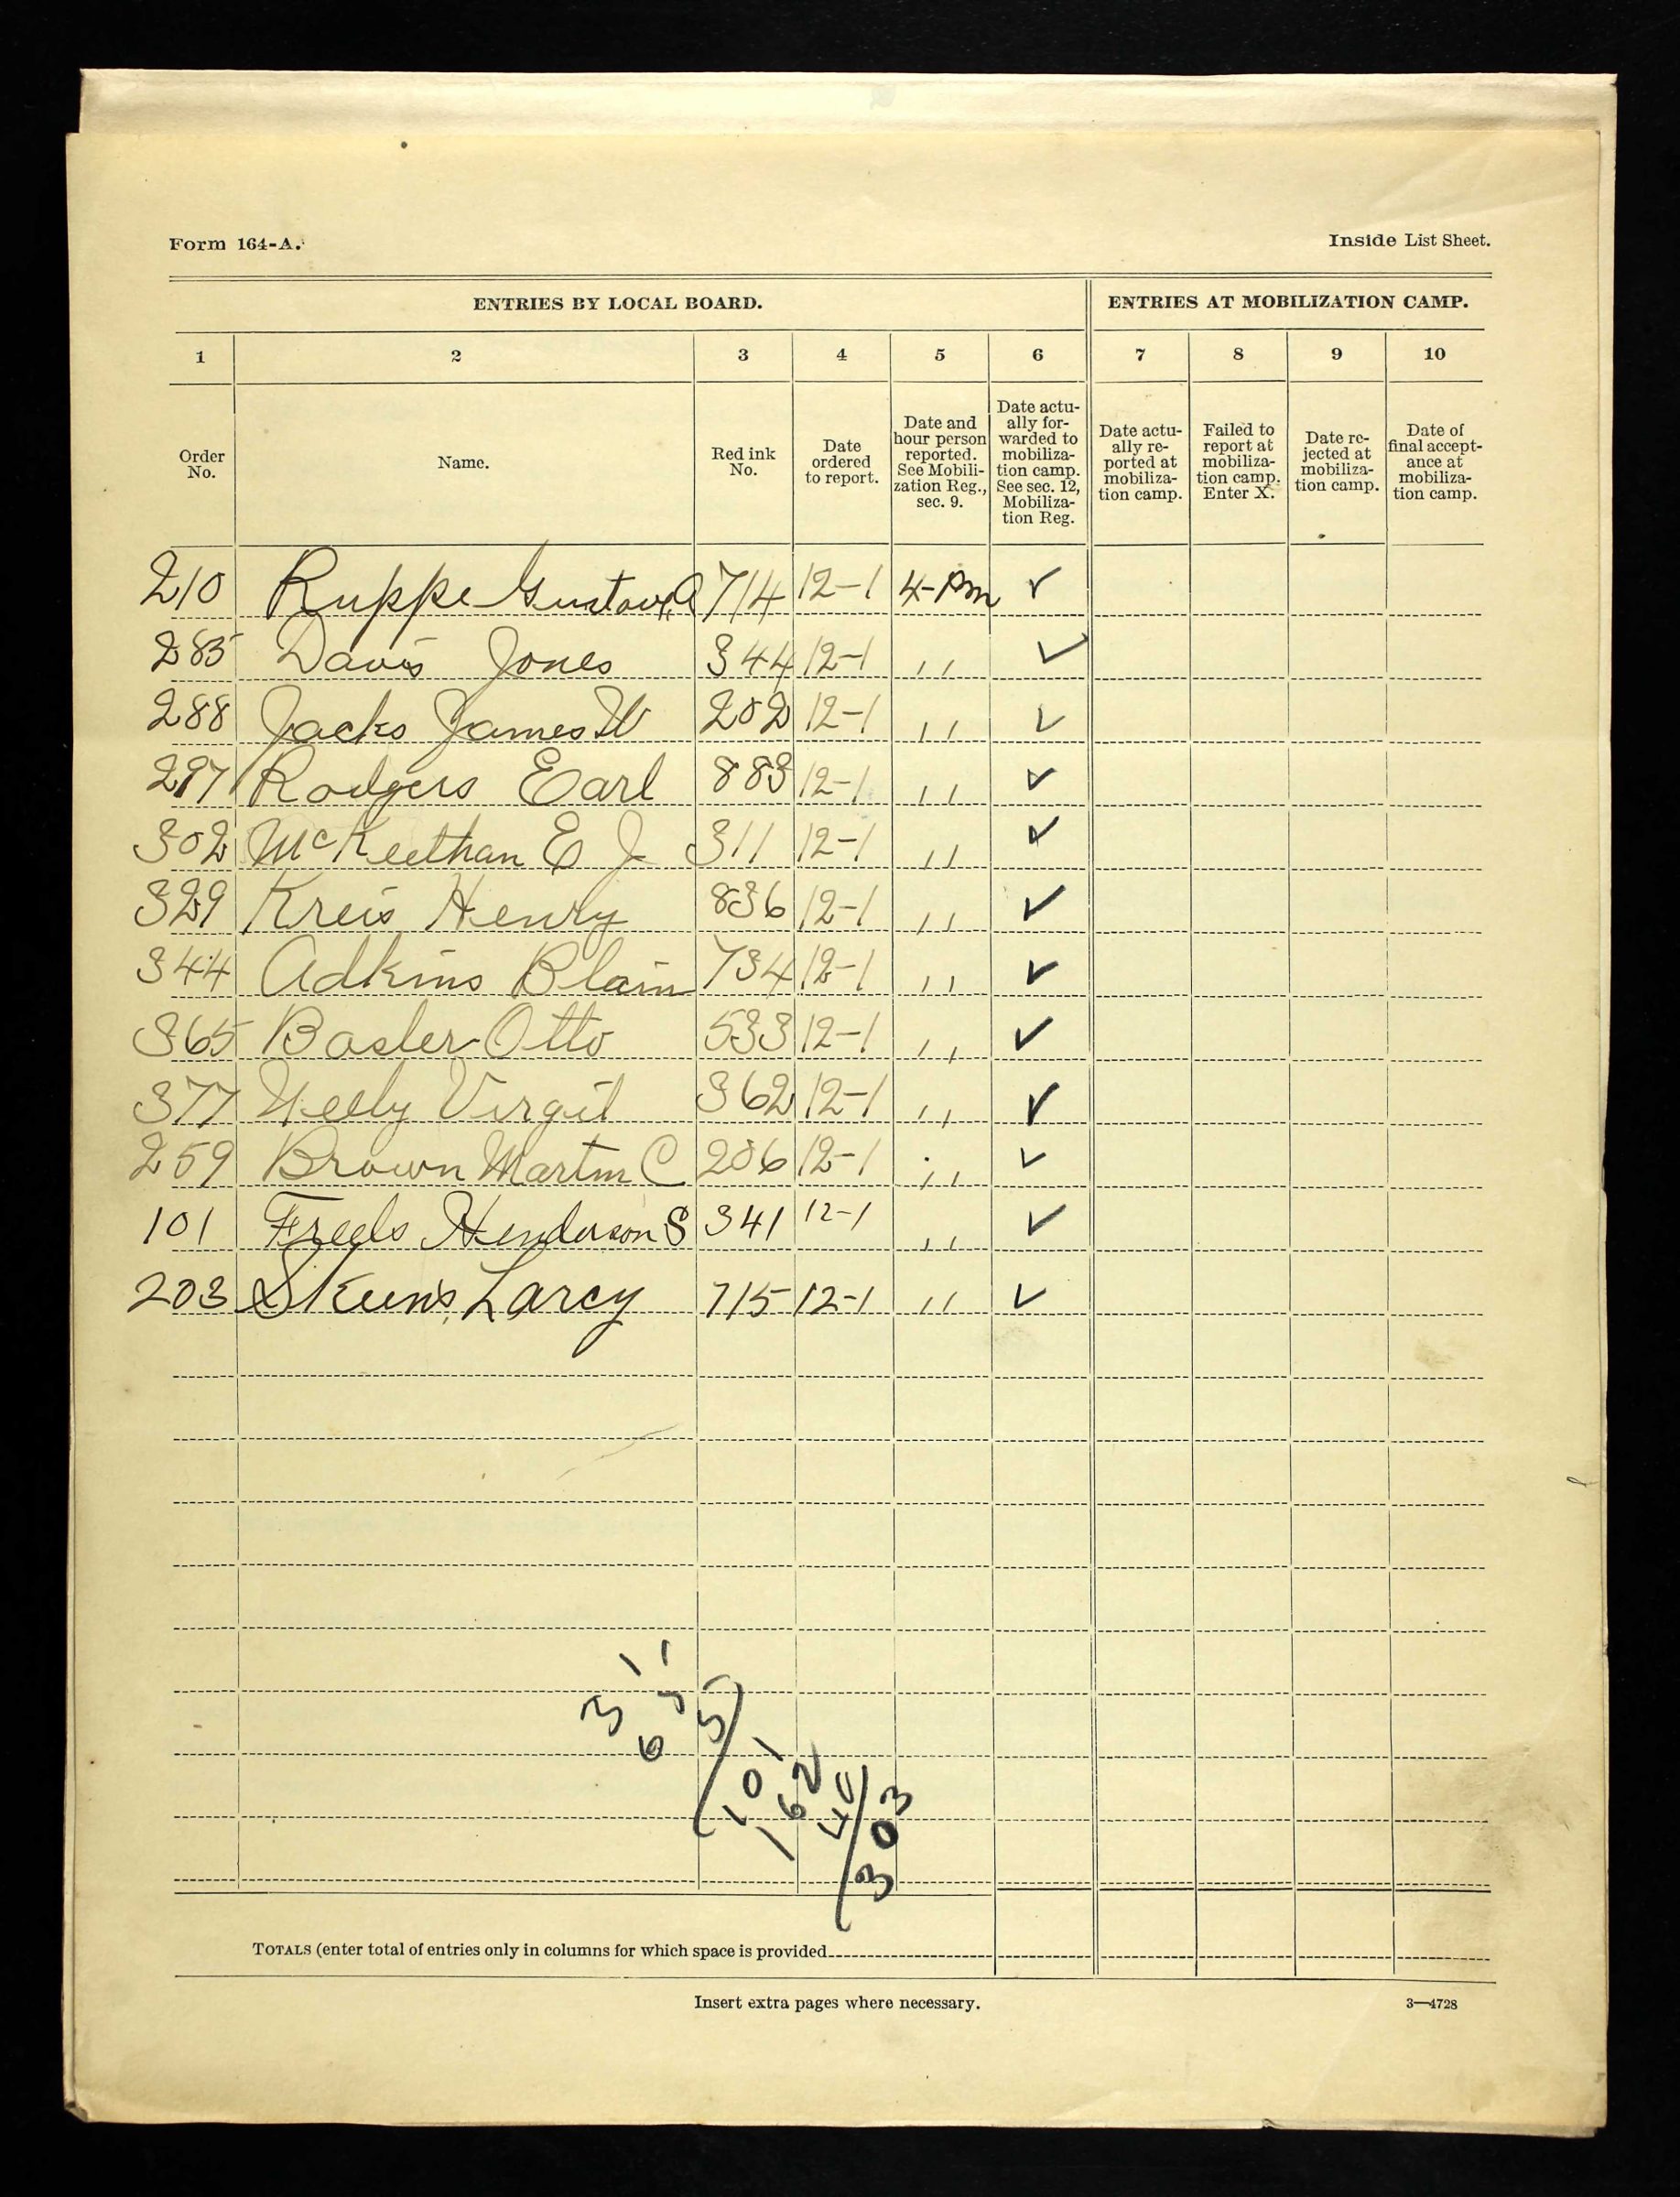 Form 164-A.
Inside List Sheet.
ENTRIES BY LOCAL BOARD. ENTRIES AT MOBILIZATION CAMP.
1 2 3 4 5 6 7 8 9 10
Order No.
Name.
Red ink No.
Date ordered to report.
Date and hour person reported. See Mobili-zation Reg., sec. 9.
Date actu-ally for-warded to mobiliza-tion camp. See sec. 12, Mobiliza-tion Reg.
Date actu-ally re-ported at mobiliza-tion camp.
Failed to report at mobiliza-tion camp. Enter X.
Date re-jected at mobiliza-tion camp.
Date of final accept-ance at mobiliza-tion camp.
210 Ruppe Gustav A 714 12-1 4-PM ✓
285 Davis Jones 344 12-1 ,, ✓
288 Jacks James W 202 12-1 ,, ✓
297 Rodgers Earl 883 12-1 ,, ✓
302 McKeethan E J 311 12-1 ,, ✓
329 Kreis Henry 836 12-1 ,, ✓
344 Adkins Blain 734 12-1 ,, ✓
365 Basler Otto 533 12-1 ,, ✓
377 Neely Virgil 362 12-1 ,, ✓
259 Brown Martin C 206 12-1 ,, ✓
101 Freels Henderson S 341 12-1 ,, ✓
203 Skeens, Larcy 715 12-1 ,, ✓
101
162
40
303
TOTALS (enter total of entries only in columns for which space is provided
Insert extra pages where necessary.
3—4728